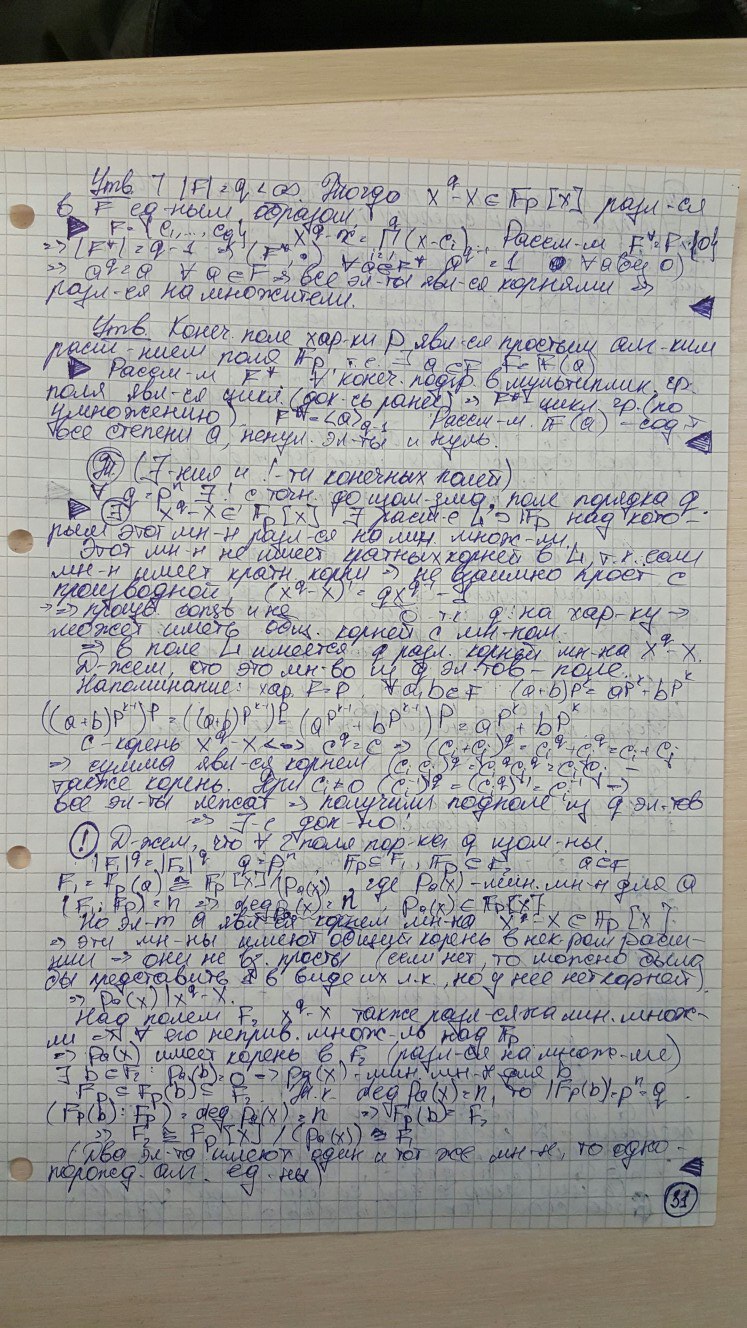 Утв. ] |F| = q < ∞. Тогда X^q - X ∈ F_p [X] разл-ся
в F ед-ным образом
F = {c_1, ..., c_q} X^q - x = ∏ (x - c_i). Рассм-м F* = F \ {0}
=> |F*| = q - 1 => (F*, ·) ∀ a ∈ F* a^{q-1} = 1
=> a^q = a ∀ a ∈ F => все эл-ты явл-ся корнями =>
разл-ся на множители.
Утв. Конеч. поле хар-ки p явл-ся простым алг-ким
расш-нием поля F_p т.е. ∃ a ∈ F F = F_p(a)
Рассм-м F* ∀ конеч. подгр. в мультиплик. гр.
поля явл-ся цикл. (док-сь ранее) => F* цикл. гр. (по
умножению) F* = <a>_{q-1} Рассм-м F_p(a) - сод-т
все степени a, ненул. эл-ты и нуль.
(∃-ния и !-ти конечных полей)
∀ q = p^n ∃! с точн. до изом-зма, поле порядка q.
∃ X^q - X ∈ F_p [X] ∃ расш-е L ⊃ F_p над кото-
рым этот мн-н разл-ся на лин. множ-ли.
Этот мн-н не имеет кратных корней в L, т.к. если
мн-н имеет кратн. корни => не взаимно прост с
производной (X^q - X)' = qX^{q-1} - 1
и не
может иметь общ. корней с мн-ном.
=> в поле L имеется q разл. корней мн-на X^q - X.
Д-жем, что это мн-во из q эл-тов - поле.
Напоминание: хар. F = p ∀ a, b ∈ F (a+b)^{p^k} = a^{p^k} + b^{p^k}
((a+b)^{p^{k-1}})^p = (a^{p^{k-1}} + b^{p^{k-1}})^p = a^{p^k} + b^{p^k}
c - корень X^q - X <=> c^q = c => (c_i + c_j)^q = c_i^q + c_j^q = c_i + c_j
=> сумма явл-ся корнем (c_i c_j)^q = c_i^q c_j^q = c_i c_j -
также корень. При c_i ≠ 0 (c_i^{-1})^q = (c_i^q)^{-1} = c_i^{-1} =>
все эл-ты лежат => получили подполе из q эл-тов
=> ∃-е док-но!
! Д-жем, что ∀ 2 поля пор-ка q изом-ны.
|F_1| = |F_2| = q q = p^n, F_p ⊆ F_1, F_p ⊆ F_2 a ∈ F
F_1 = F_p(a) ≅ F_p [X] / (p_a(x)), где p_a(x) - мин. мн-н для a
(F_1 : F_p) = n => deg p_a(x) = n, p_a(x) ∈ F_p[X]
Но эл-т a явл-ся корнем мн-на X^q - X ∈ F_p [X]
=> эти мн-ны имеют общий корень в нек-ром расши-
нии => они не вз. просты (если нет, то можно было
бы представить 1 в виде их л.к., но у нее нет корней)
=> p_a(x) | X^q - X.
Над полем F_2 X^q - X также разл-ся на лин. множ-
ли => ∀ его неприв. множ-ль над F_p
=> p_a(x) имеет корень в F_2 (разл-ся на множ-ли)
] b ∈ F_2 : p_a(b) = 0 => p_a(x) - мин. мн-н для b
F_p ⊆ F_p(b) ⊆ F_2 Т.к. deg p_a(x) = n, то |F_p(b)| = p^n = q.
(F_p(b) : F_p) = deg p_a(x) = n => F_p(b) = F_2
=> F_2 ≅ F_p [X] / (p_a(x)) ≅ F_1
(два эл-та имеют один и тот же мн-н, то одно-
порожд. алг. ед-ны)
31